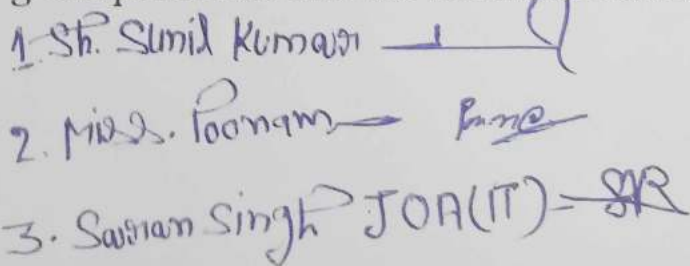 1. Sh. Sunil Kumar
2. Miss. Poonam
3. Sawan Singh JOA(IT) - SR